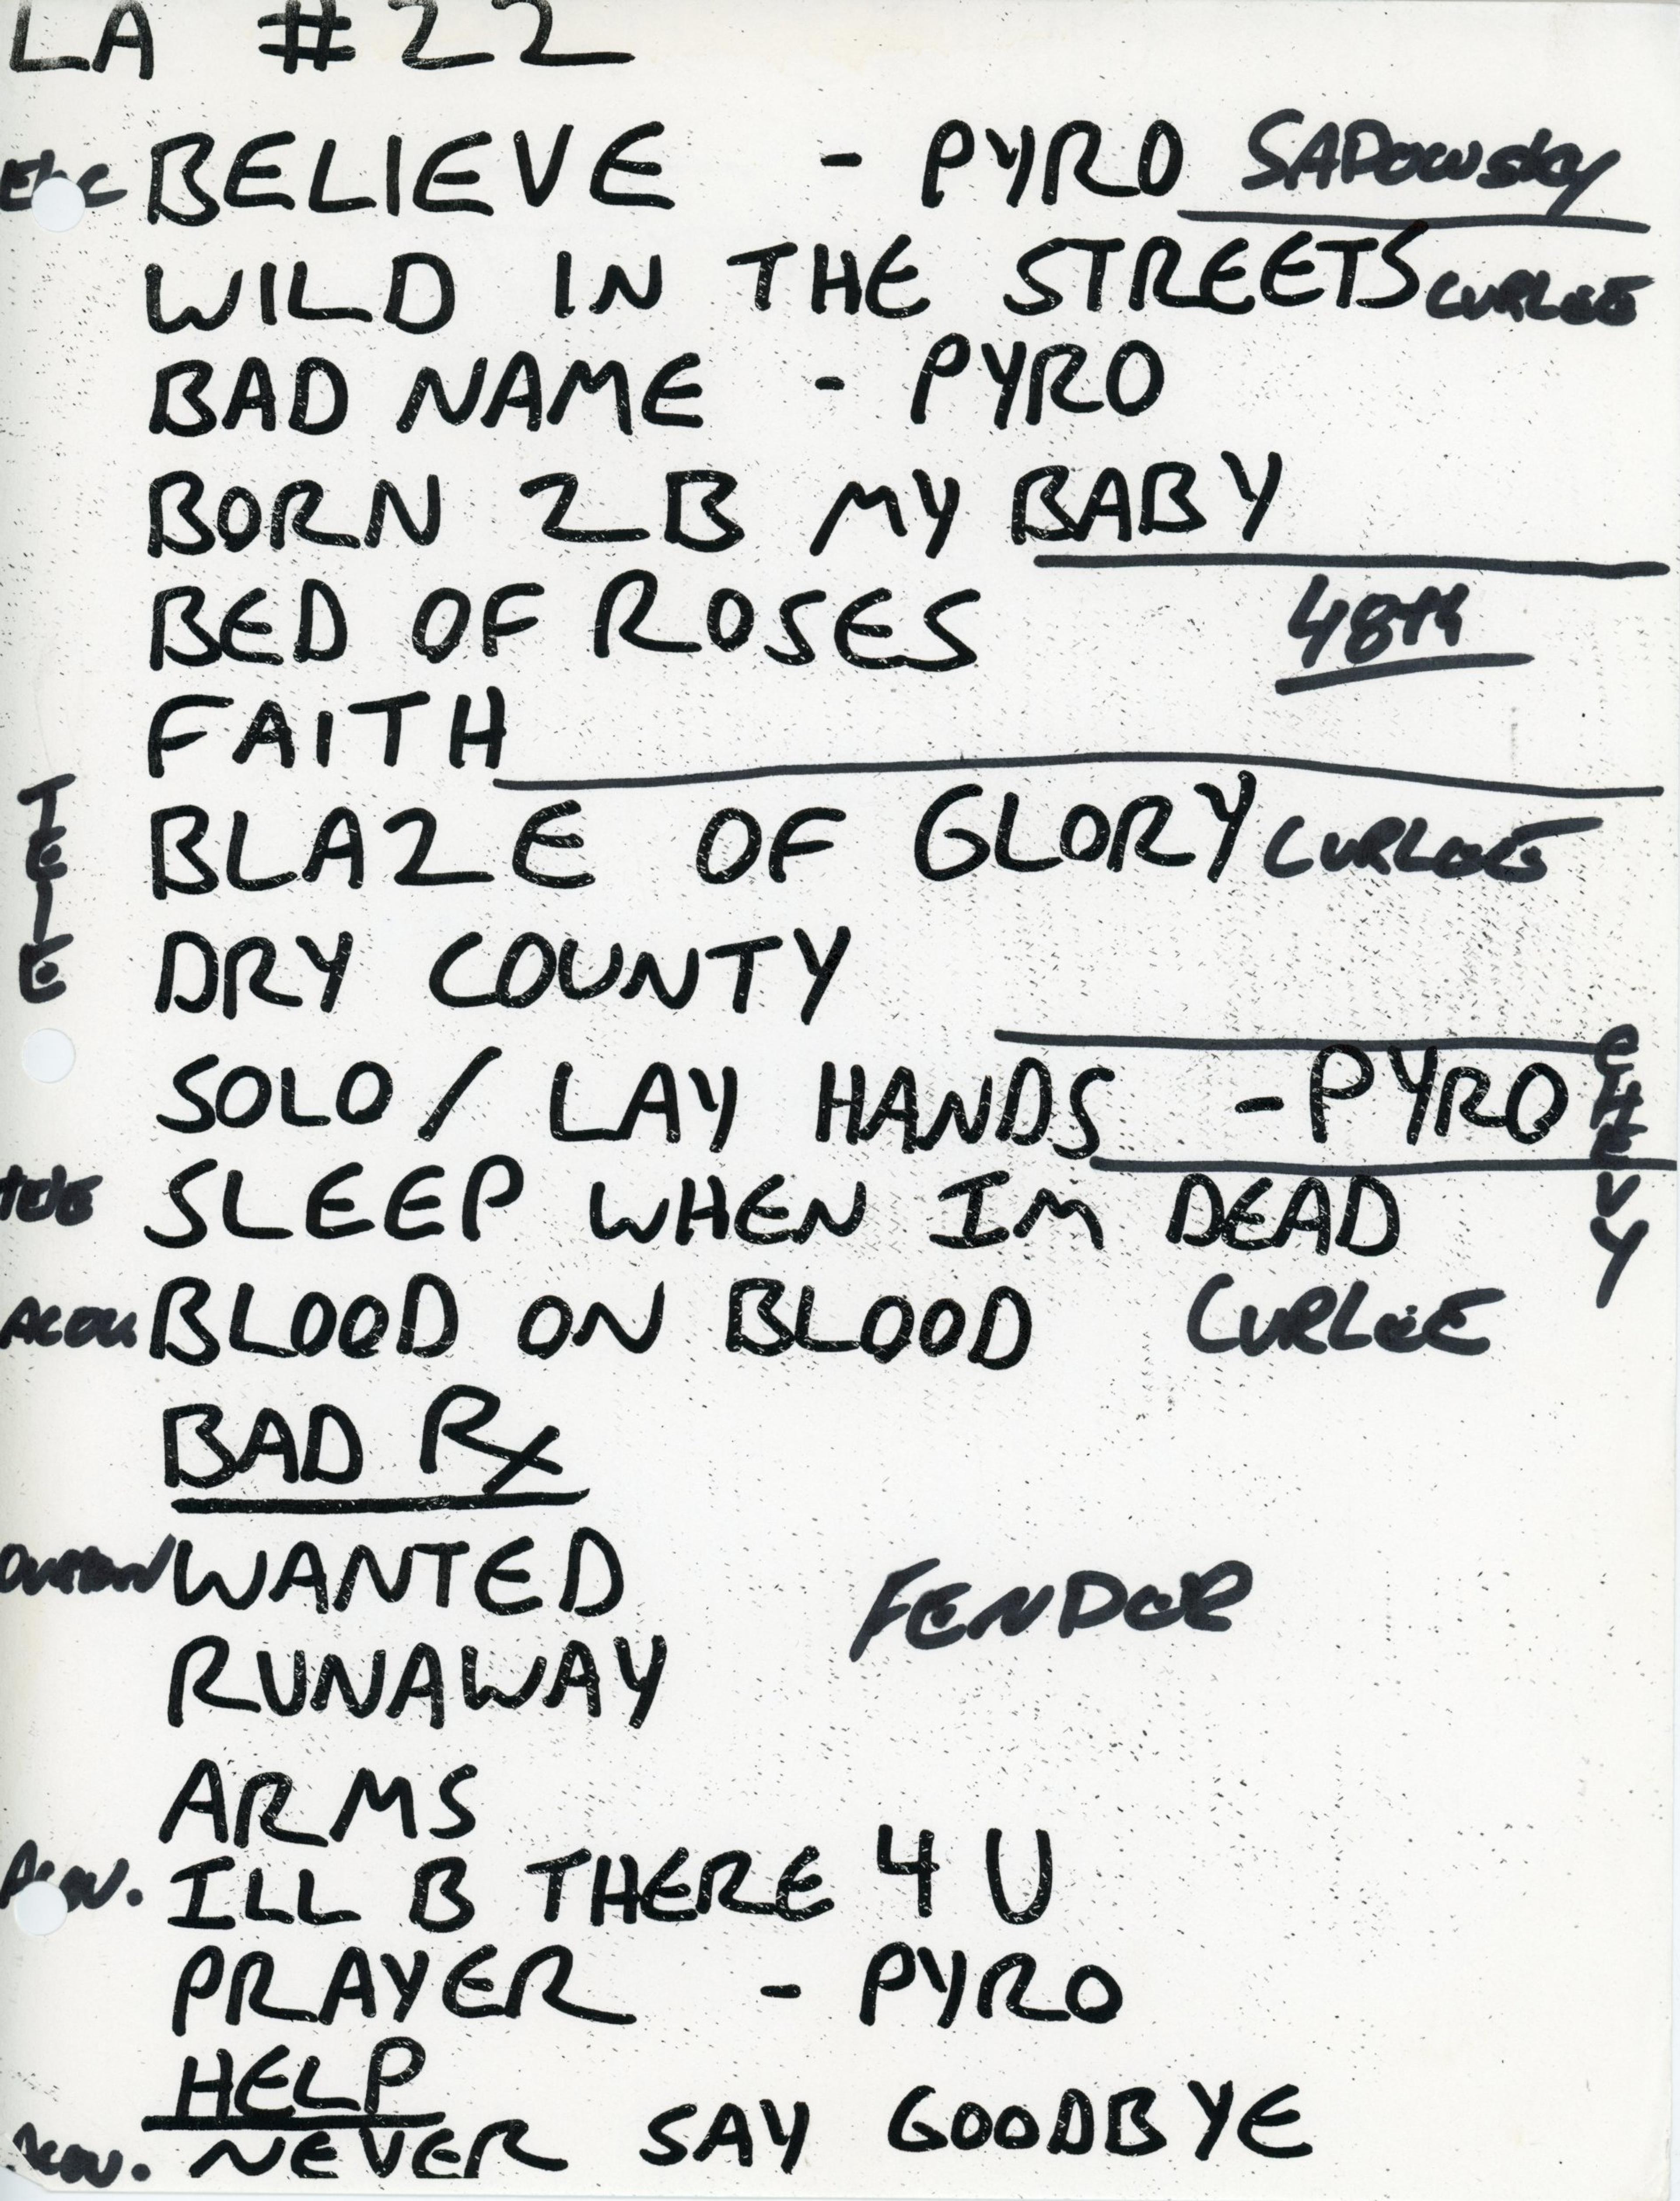 LA #22
BELIEVE - PYRO SADOWSKY
WILD IN THE STREETS CURLEE
BAD NAME - PYRO
BORN 2 B MY BABY
BED OF ROSES 48TH
FAITH
TELE
BLAZE OF GLORY CURLEE
DRY COUNTY
SOLO / LAY HANDS - PYRO
CHEVY
TELE SLEEP WHEN IM DEAD
ACOU. BLOOD ON BLOOD CURLEE
BAD Rx
WANTED FENDER
RUNAWAY
ARMS
ACOU. ILL B THERE 4 U
PRAYER - PYRO
HELP
ACOU. NEVER SAY GOODBYE